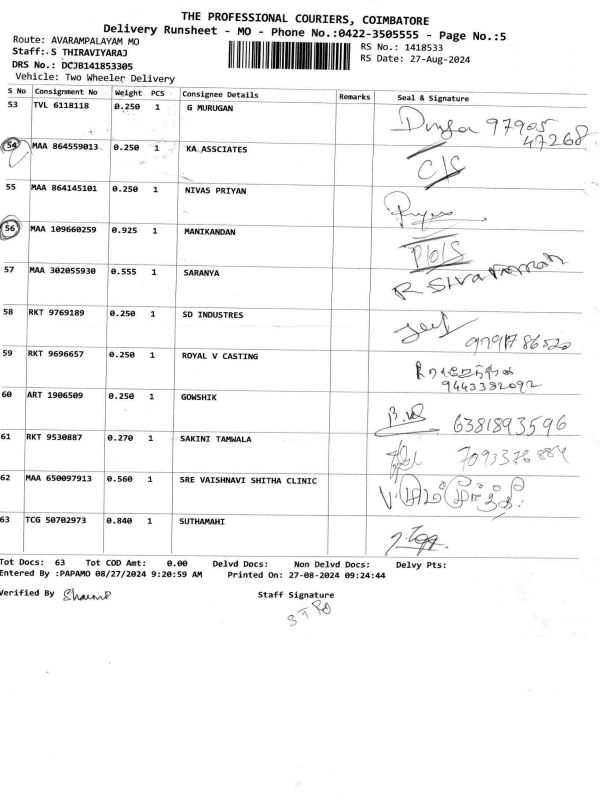 THE PROFESSIONAL COURIERS, COIMBATORE
Delivery Runsheet - MO - Phone No.:0422-3505555 - Page No.:5
Route: AVARAMPALAYAM MO
RS No.: 1418533
Staff: S THIRAVIYARAJ
RS Date: 27-Aug-2024
DRS No.: DCJB141853305
Vehicle: Two Wheeler Delivery
S No Consignment No Weight PCS Consignee Details Remarks Seal & Signature
53 TVL 6118118 0.250 1 G MURUGAN
97905
47268
54 MAA 864559013 0.250 1 KA ASSCIATES
C/S
55 MAA 864145101 0.250 1 NIVAS PRIYAN
56 MAA 109660259 0.925 1 MANIKANDAN
57 MAA 302055930 0.555 1 SARANYA
R Sivaraman
58 RKT 9769189 0.250 1 SD INDUSTRES
59 RKT 9696657 0.250 1 ROYAL V CASTING
9443382092
60 ART 1906509 0.250 1 GOWSHIK
6381893596
61 RKT 9530887 0.270 1 SAKINI TAMWALA
62 MAA 650097913 0.560 1 SRE VAISHNAVI SHITHA CLINIC
63 TCG 50702973 0.840 1 SUTHAMAHI
Tot Docs: 63 Tot COD Amt: 0.00 Delvd Docs: Non Delvd Docs: Delvy Pts:
Entered By :PAPAMO 08/27/2024 9:20:59 AM Printed On: 27-08-2024 09:24:44
Verified By
Staff Signature